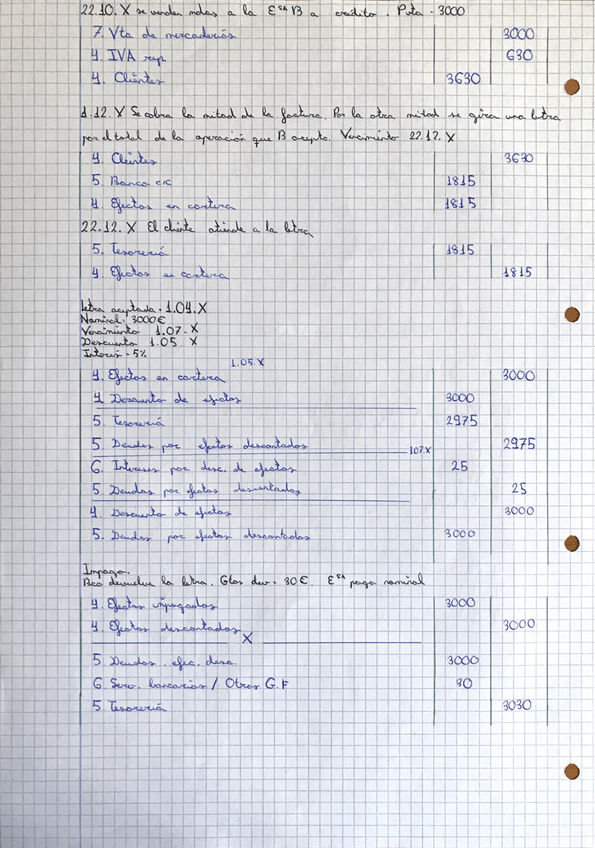 22.10.X se venden mdas a la Esa B a crédito. Pvta = 3000
7. Vta de mercaderías 3000
4. IVA rep 630
4. Clientes 3630
1.12.X Se cobra la mitad de la factura. Por la otra mitad se gira una letra
por el total de la operación que B acepta. Vencimiento 22.12.X
4. Clientes 3630
5. Banco c/c 1815
4. Efectos en cartera 1815
22.12.X El cliente atiende a la letra
5. Tesorería 1815
4. Efectos en cartera 1815
letra aceptada = 1.04.X
Nominal = 3000€
Vencimiento 1.07.X
Descuento 1.05.X
Interés = 5%
1.05.X
4. Efectos en cartera 3000
4 Descuento de efectos 3000
5. Tesorería 2975
5. Deudas por efectos descontados 2975
107.X
6. Intereses por desc. de efectos 25
5. Deudas por efectos descontados 25
4. Descuento de efectos 3000
5. Deudas por efectos descontados 3000
Impago.
Bco devuelve la letra. Gtos dev = 30€. Esa paga nominal
4. Efectos impagados 3000
4. Efectos descontados 3000
X
5. Deudas. efec. desc. 3000
6. Serv. bancarios / Otros G.F 30
5. Tesorería 3030